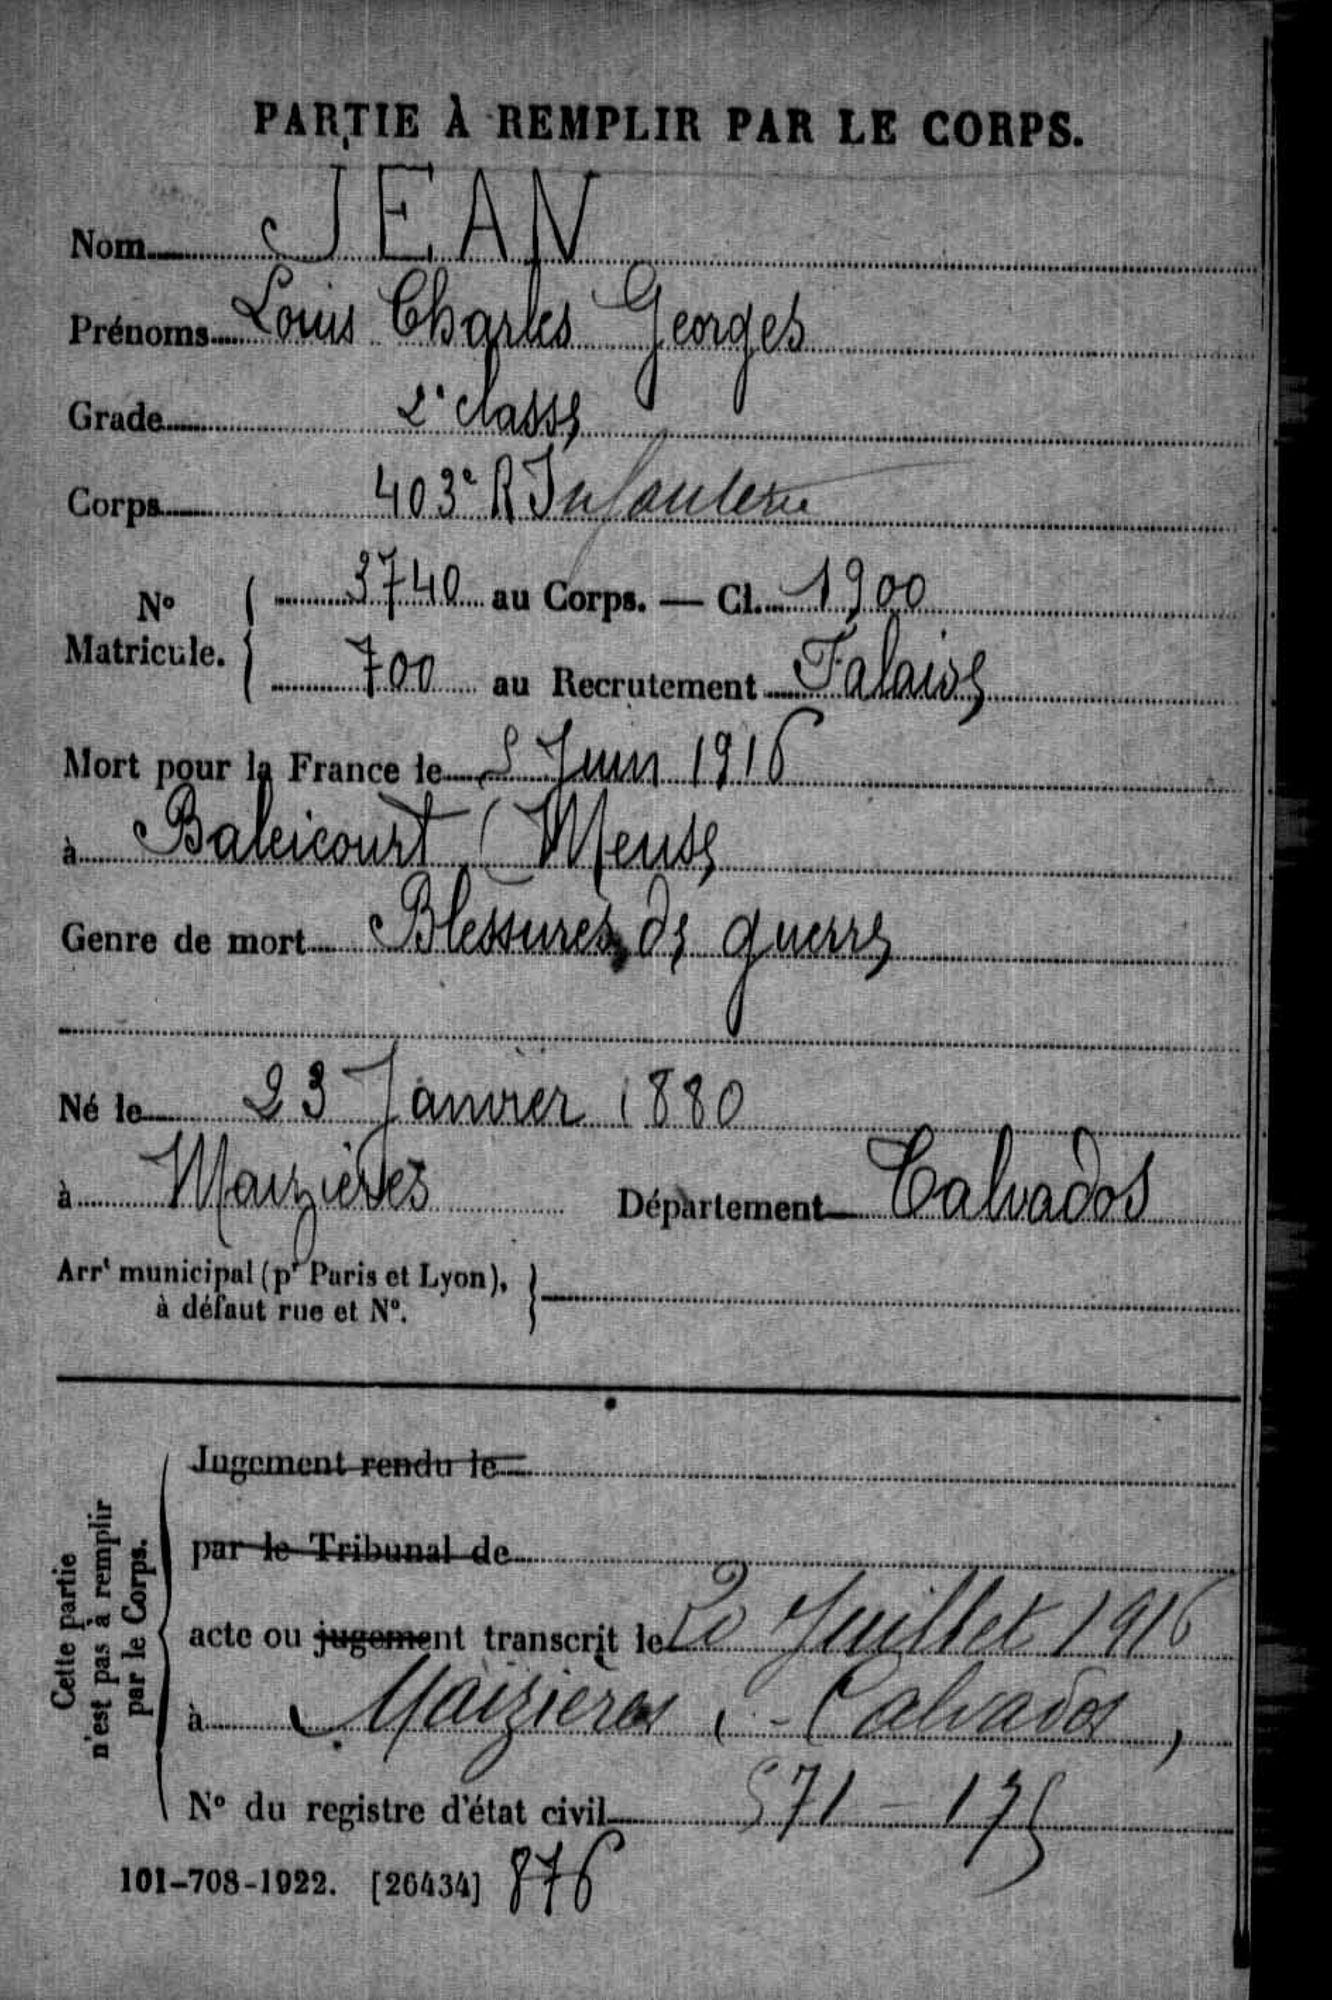 PARTIE À REMPLIR PAR LE CORPS.
Nom JEAN
Prénoms Louis Charles Georges
Grade 2e classe
Corps 403e R Infanterie
No Matricule. 3740 au Corps. — Cl. 1900
700 au Recrutement Falaise
Mort pour la France le 5 Juin 1916
à Baleicourt (Meuse
Genre de mort Blessures de guerre
Né le 23 Janvier 1880
à Maizières Département Calvados
Arrt municipal (pr Paris et Lyon),
à défaut rue et No.
Cette partie
n'est pas à remplir
par le Corps.
Jugement rendu le
par le Tribunal de
acte ou jugement transcrit le 20 Juillet 1916
à Maizières (Calvados)
No du registre d'état civil 571 – 175
101-708-1922. [26434] 876